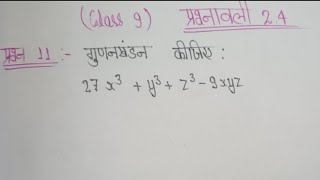 (Class 9) प्रश्नावली 2.4
प्रश्न 11 :- गुणनखंडन कीजिए :
27x³ + y³ + z³ - 9xyz